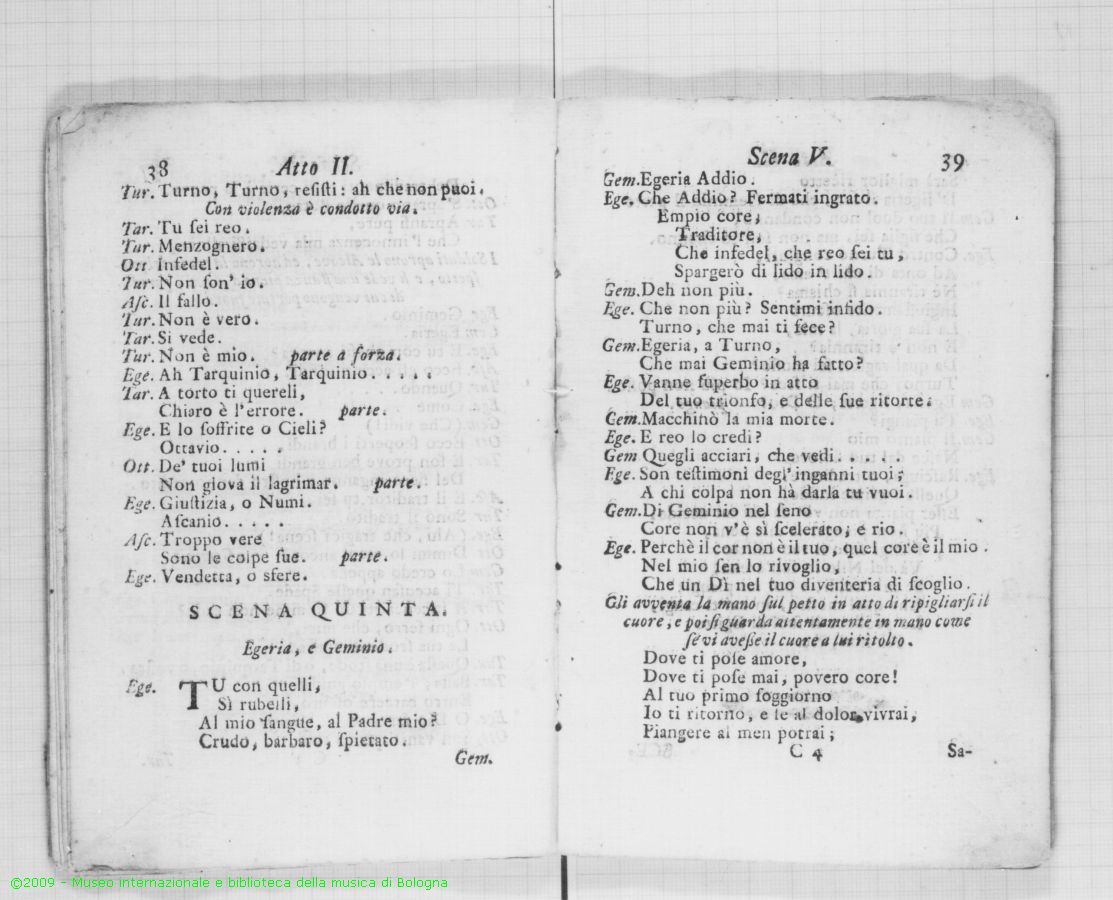 38 Atto II.
Tur. Turno, Turno, resisti: ah che non puoi.
Con violenza è condotto via.
Tar. Tu sei reo.
Tur. Menzognero.
Ott Infedel.
Tur. Non son' io.
Asc. Il fallo.
Tur. Non è vero.
Tar. Si vede.
Tur. Non è mio. parte a forza.
Ege. Ah Tarquinio, Tarquinio.....
Tar. A torto ti quereli,
Chiaro è l'errore. parte.
Ege. E lo soffrite o Cieli?
Ottavio.....
Ott. De' tuoi lumi
Non giova il lagrimar. parte.
Ege. Giustizia, o Numi.
Ascanio.....
Asc. Troppo vere
Sono le colpe sue. parte.
Ege. Vendetta, o sfere.
SCENA QUINTA.
Egeria, e Geminio.
Ege. TU con quelli,
Sì rubelli,
Al mio sangue, al Padre mio?
Crudo, barbaro, spietato.
Gem.
Scena V. 39
Gem. Egeria Addio.
Ege. Che Addio? Fermati ingrato.
Empio core,
Traditore,
Che infedel, che reo sei tu,
Spargerò di lido in lido.
Gem. Deh non più.
Ege. Che non più? Sentimi infido.
Turno, che mai ti fece?
Gem. Egeria, a Turno,
Che mai Geminio ha fatto?
Ege. Vanne superbo in atto
Del tuo trionfo, e delle sue ritorte:
Gem. Macchinò la mia morte.
Ege. E reo lo credi?
Gem Quegli acciari, che vedi.....
Ege. Son testimoni degl' inganni tuoi;
A chi colpa non hà darla tu vuoi.
Gem. Di Geminio nel seno
Core non v'è sì scelerato, e rio.
Ege. Perchè il cor non è il tuo, quel core è il mio.
Nel mio sen lo rivoglio,
Che un Dì nel tuo diventeria di scoglio.
Gli avventa la mano sul petto in atto di ripigliarsi il
cuore, e poi si guarda attentamente in mano come
se vi avesse il cuore a lui ritolto.
Dove ti pose amore,
Dove ti pose mai, povero core!
Al tuo primo soggiorno
Io ti ritorno, e se al dolor vivrai,
Piangere al men potrai;
C 4 Sa-
©2009 - Museo internazionale e biblioteca della musica di Bologna